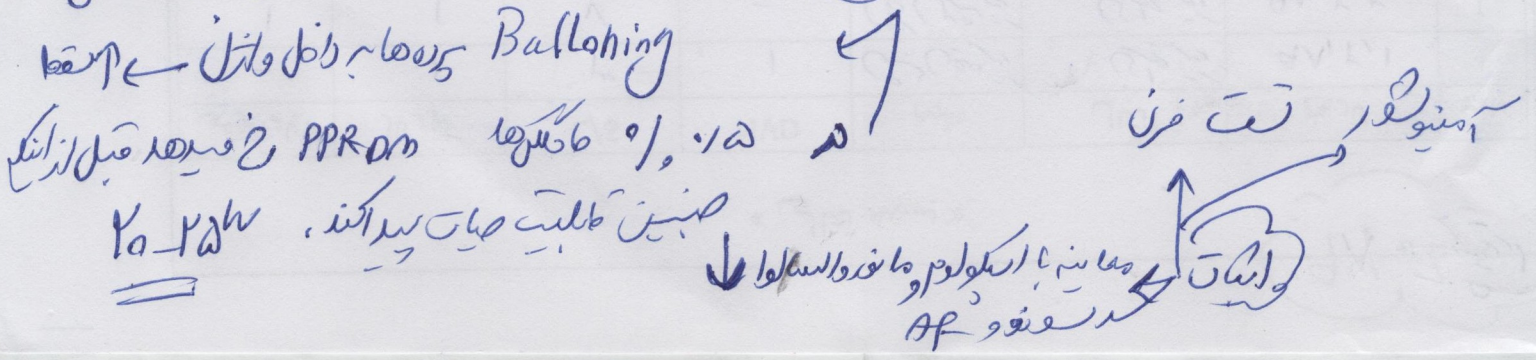 Balloning پرده‌ها به داخل واژن ← سقط
در ۰/۵ ٪ حاملگی‌ها PPROM رخ میدهد قبل از اینکه
جنین قابلیت حیات پیدا کند. ۲۰-۲۵w
آمنیوشور تست فرن
اثبات معاینه با اسپکولوم و مانور والسالوا ↓
سونو و AF